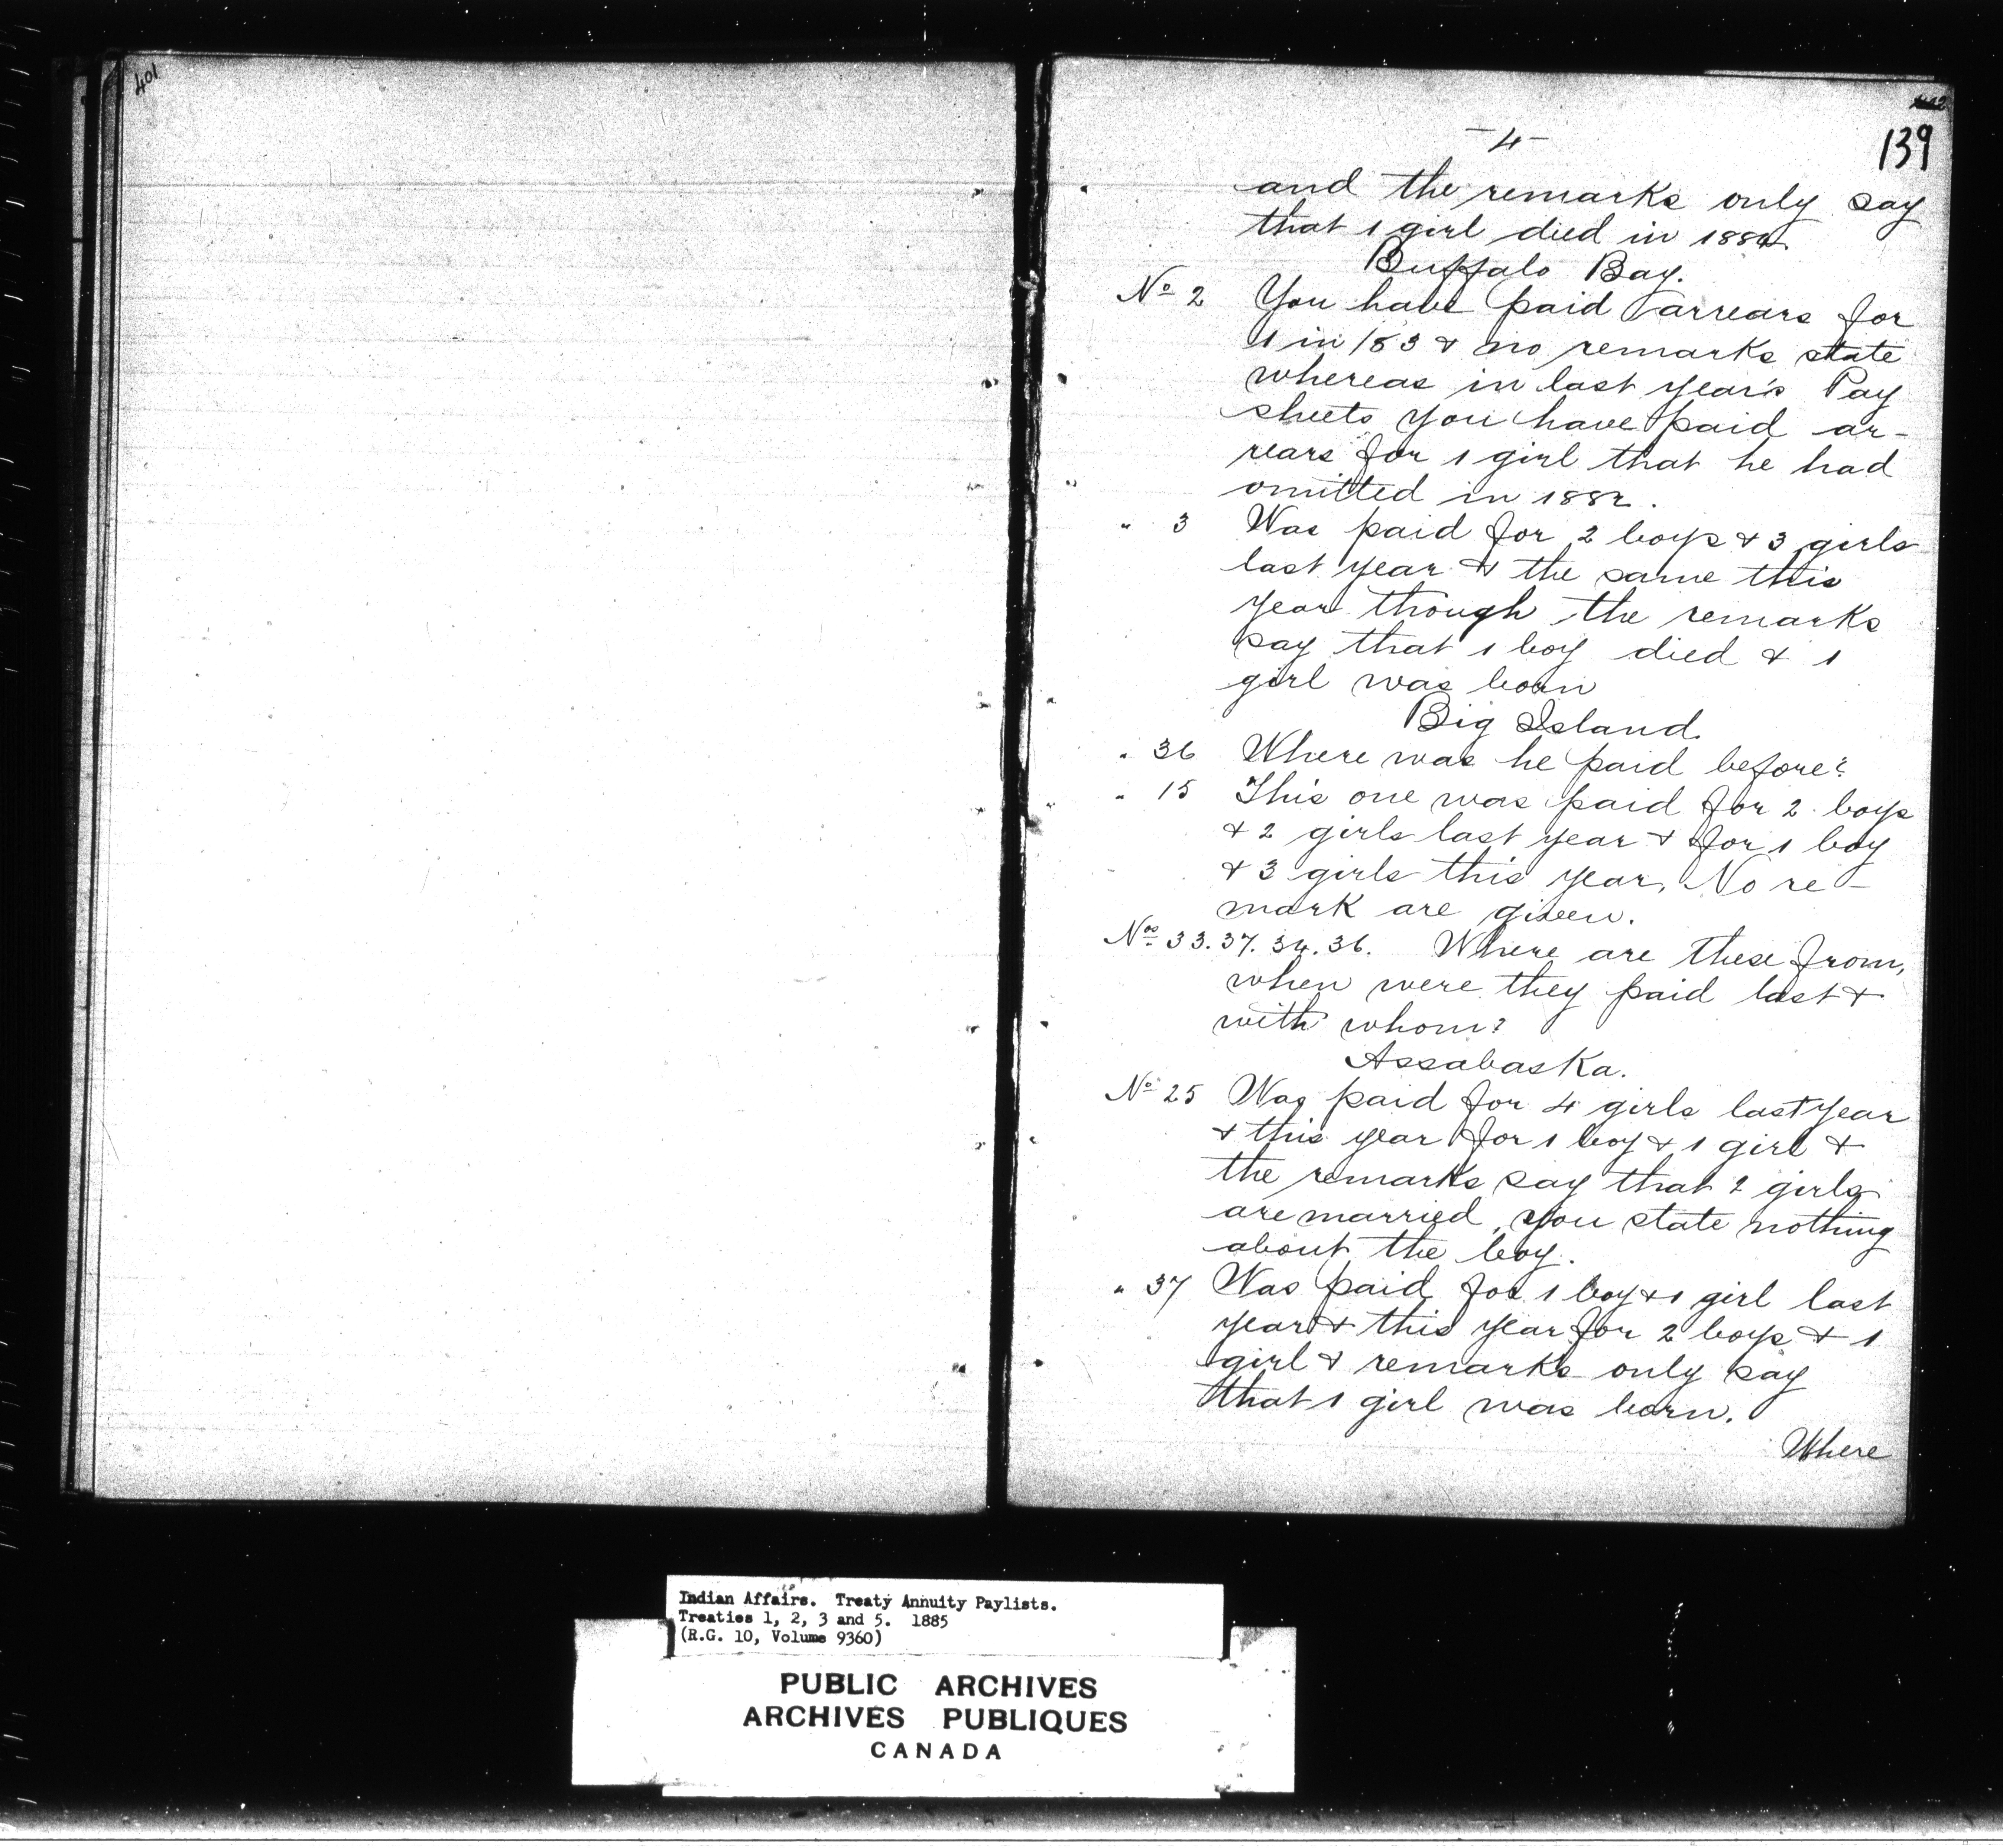 401
139
-4-
and the remarks only say
that 1 girl died in 1884
Buffalo Bay.
No 2 You have paid arrears for
1 in /83 & no remarks state
whereas in last year's Pay
sheets you have paid ar-
rears for 1 girl that he had
omitted in 1882.
" 3 Was paid for 2 boys & 3 girls
last year & the same this
year though the remarks
say that 1 boy died & 1
girl was born
Big Island.
" 36 Where was he paid before?
" 15 This one was paid for 2 boys
& 2 girls last year & for 1 boy
& 3 girls this year. No re-
mark are given.
Nos 33. 37. 34. 36. Where are these from,
when were they paid last &
with whom?
Assabaska.
No 25 Was paid for 4 girls last year
& this year for 1 boy & 1 girl &
the remarks say that 2 girls
are married, you state nothing
about the boy.
" 37 Was paid for 1 boy & 1 girl last
year & this year for 2 boys & 1
girl & remarks only say
that 1 girl was born.
Where
Indian Affairs. Treaty Annuity Paylists.
Treaties 1, 2, 3 and 5. 1885
(R.G. 10, Volume 9360)
PUBLIC ARCHIVES
ARCHIVES PUBLIQUES
CANADA